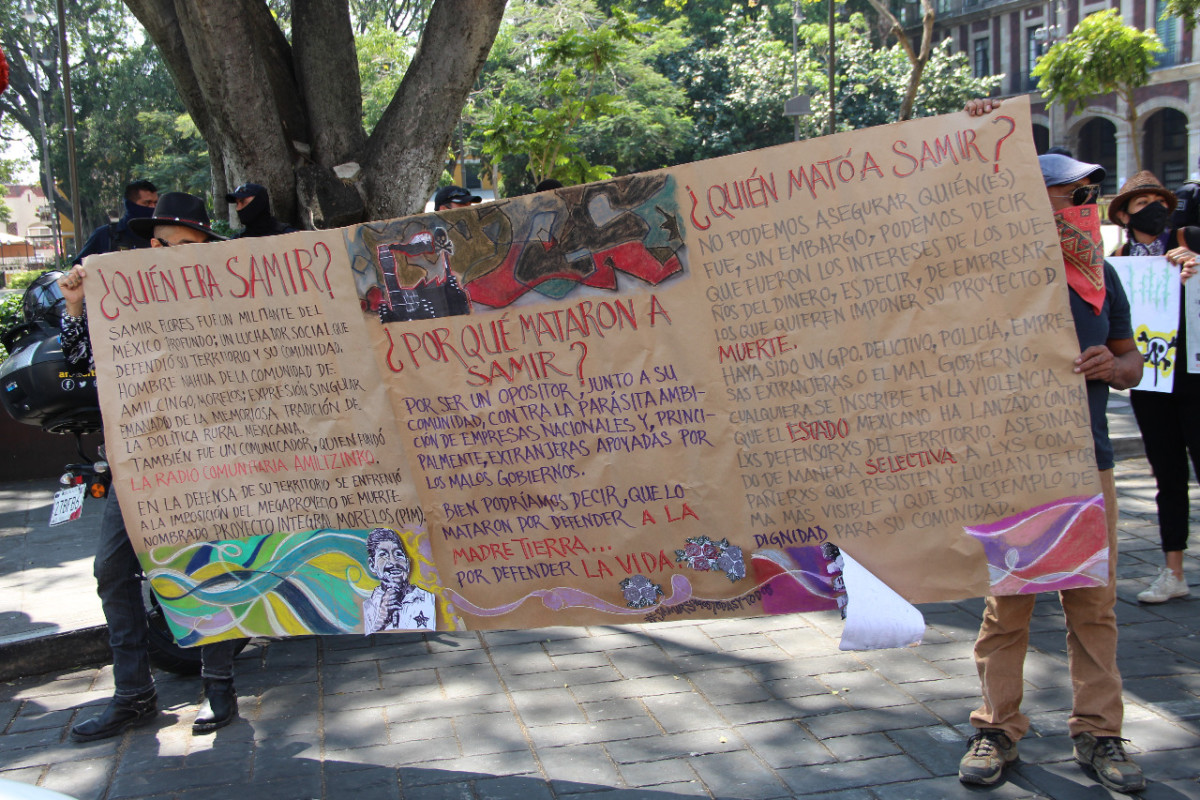 ¿QUIÉN ERA SAMIR?
SAMIR FLORES FUE UN MILITANTE DEL
MÉXICO PROFUNDO; UN LUCHADOR SOCIAL QUE
DEFENDIÓ SU TERRITORIO Y SU COMUNIDAD.
HOMBRE NAHUA DE LA COMUNIDAD DE
AMILCINGO, MORELOS; EXPRESIÓN SINGULAR
EMANADO DE LA MEMORIOSA TRADICIÓN DE
LA POLÍTICA RURAL MEXICANA.
TAMBIÉN FUE UN COMUNICADOR, QUIEN FUNDÓ
LA RADIO COMUNITARIA AMILTZINKO.
EN LA DEFENSA DE SU TERRITORIO SE ENFRENTÓ
A LA IMPOSICIÓN DEL MEGAPROYECTO DE MUERTE
NOMBRADO PROYECTO INTEGRAL MORELOS (PIM).
¿POR QUÉ MATARON A
SAMIR?
POR SER UN OPOSITOR, JUNTO A SU
COMUNIDAD, CONTRA LA PARÁSITA AMBI-
CIÓN DE EMPRESAS NACIONALES Y, PRINCI-
PALMENTE, EXTRANJERAS APOYADAS POR
LOS MALOS GOBIERNOS.
BIEN PODRÍAMOS DECIR, QUE LO
MATARON POR DEFENDER A LA
MADRE TIERRA...
POR DEFENDER LA VIDA.
¿QUIÉN MATÓ A SAMIR?
NO PODEMOS ASEGURAR QUIÉN(ES)
FUE, SIN EMBARGO, PODEMOS DECIR
QUE FUERON LOS INTERESES DE LOS DUE
ÑOS DEL DINERO, ES DECIR, DE EMPRESAR-
LOS QUE QUIEREN IMPONER SU PROYECTO D
MUERTE.
HAYA SIDO UN GPO. DELICTIVO, POLICÍA, EMPRE-
SAS EXTRANJERAS O EL MAL GOBIERNO,
CUALQUIERA SE INSCRIBE EN LA VIOLENCIA
QUE EL ESTADO MEXICANO HA LANZADO CONTRA
LXS DEFENSORXS DEL TERRITORIO. ASESINAN
DO DE MANERA SELECTIVA A LXS COM-
PAÑERXS QUE RESISTEN Y LUCHAN DE FOR
MA MAS VISIBLE Y QUE SON EJEMPLO DE
DIGNIDAD PARA SU COMUNIDAD.